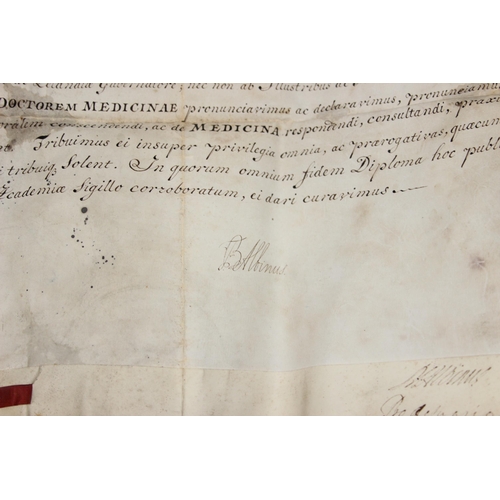 Zelandia Gubernatore, nec non ab Illustribus
DOCTOREM MEDICINAE pronunciavimus ac declaravimus, pronunciamu
conscendendi, ac de MEDICINA respondendi, consultandi, prax
Tribuimus ei insuper privilegia omnia, ac prærogativas, quacum
i tribuiq; Solent. In quorum omnium fidem Diploma hoc publ
Academiæ Sigillo corroboratum, ei dari curavimus
B Albinus